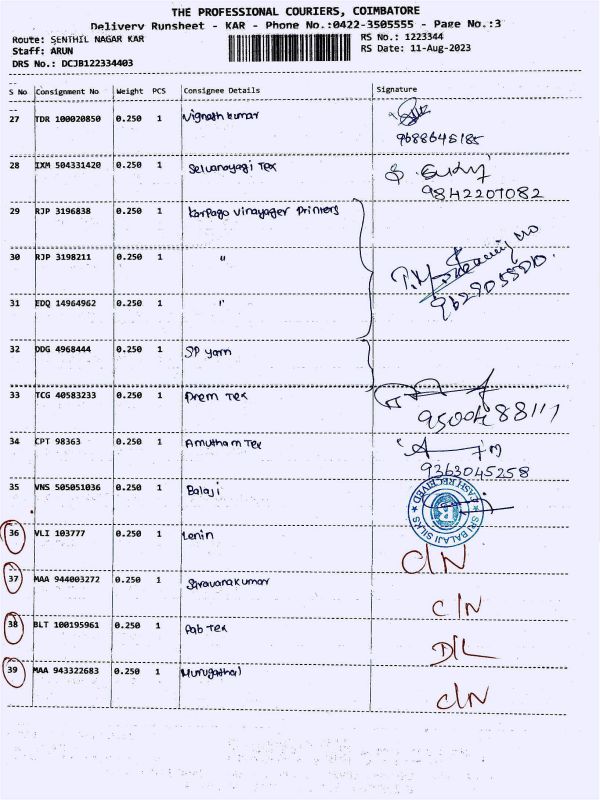 THE PROFESSIONAL COURIERS, COIMBATORE
Delivery Runsheet - KAR - Phone No.:0422-3505555 - Page No.:3
Route: SENTHIL NAGAR KAR RS No.: 1223344
Staff: ARUN RS Date: 11-Aug-2023
DRS No.: DCJB122334403
S No Consignment No Weight PCS Consignee Details Signature
27 TDR 100020850 0.250 1 Vignesh kumar
9688645185
28 IXM 504331420 0.250 1 Selvanayagi Tex
9842207082
29 RJP 3196838 0.250 1 Karpaga vinayager printers
30 RJP 3198211 0.250 1 "
31 EDQ 14964962 0.250 1 "
32 DDG 4968444 0.250 1 SP yarn
33 TCG 40583233 0.250 1 Prem Tex
34 CPT 98363 0.250 1 Amutham Tex
9363045258
35 VNS 505051036 0.250 1 Balaji
CASH RECEIVED
SRI BALAJI SILKS
36 VLI 103777 0.250 1 Lenin C/N
37 MAA 944003272 0.250 1 Saravanakumar C/N
38 BLT 100195961 0.250 1 Pab Tex D/L
39 MAA 943322683 0.250 1 Murugathal C/N